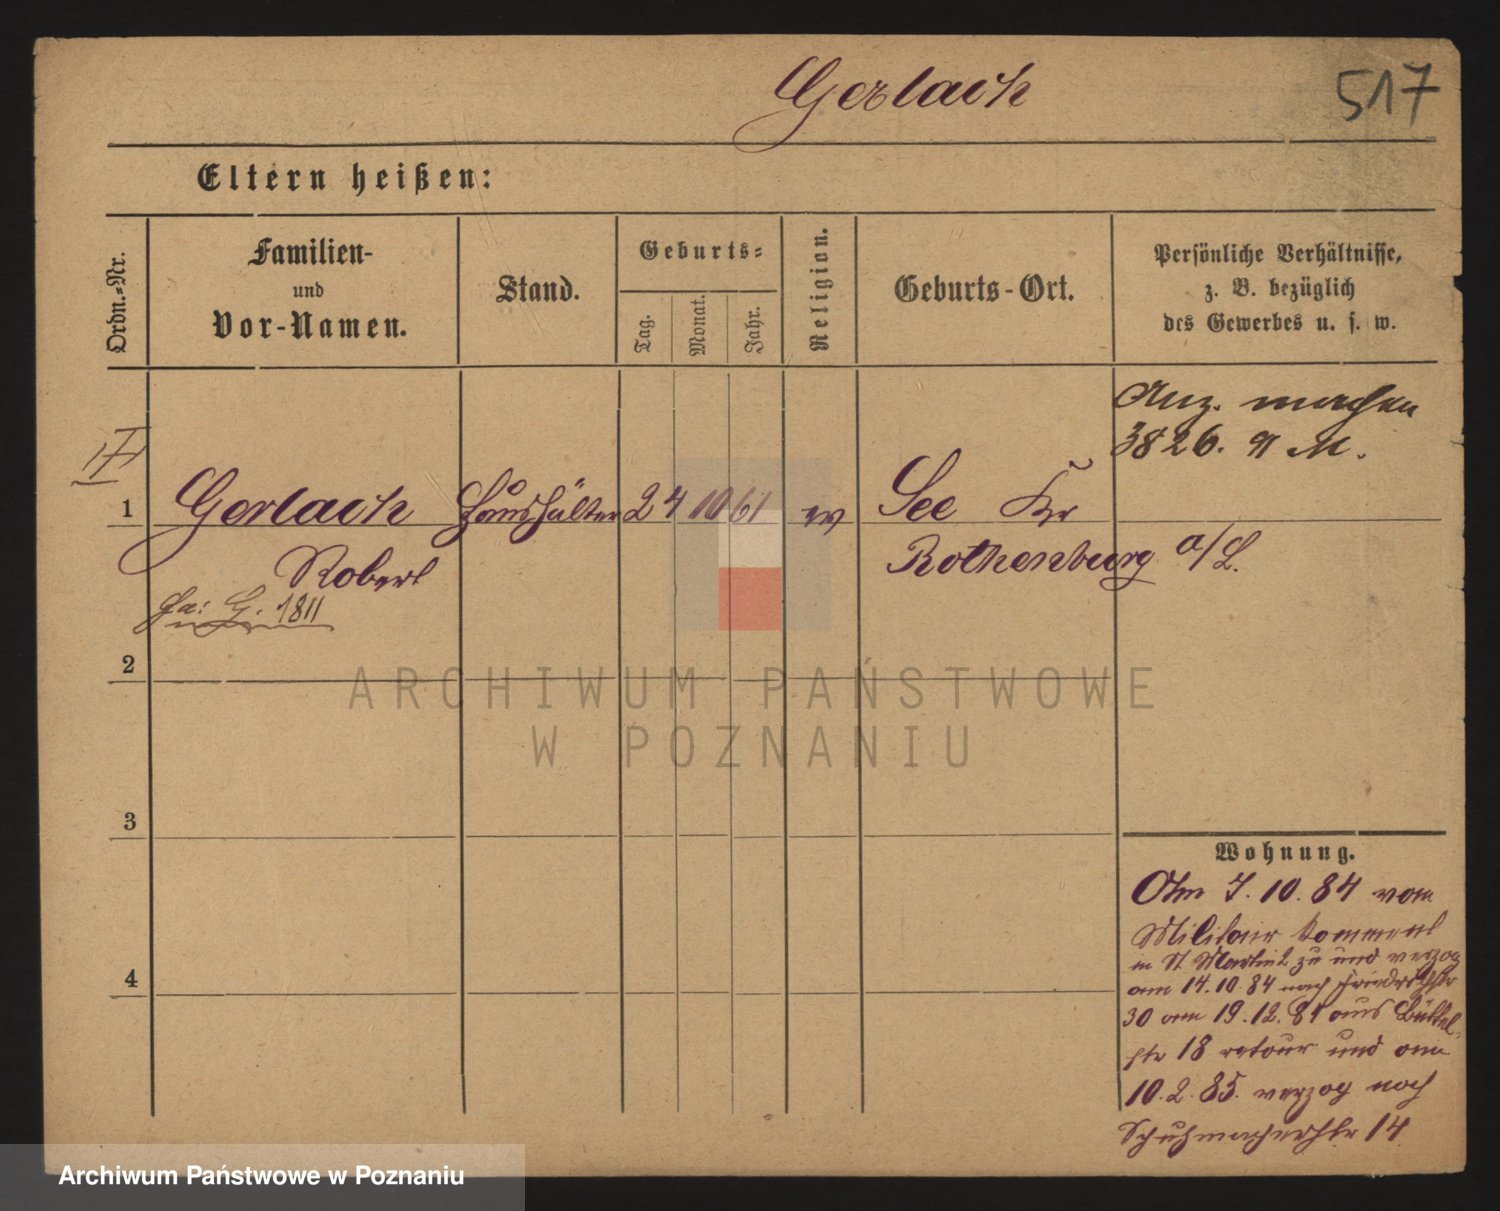 Gerlach
517
Eltern heißen:
Ordn.-Nr.
Familien-
und
Vor-Namen.
Stand.
Geburts-
Tag.
Monat.
Jahr.
Religion.
Geburts-Ort.
Persönliche Verhältnisse,
z. B. bezüglich
des Gewerbes u. s. w.
Anz. machen
3826. M.
1
Gerlach Haushälter 24 10 61 ev See Kr
Robert Rothenburg a/L.
G. 1811
2
3
4
Wohnung.
Am 7. 10. 84 vom
Militair
in St Martin 2 zu und verzog
am 14. 10. 84 nach Friedrichstr
30 am 19. 12. 84 aus Büttel-
str 18 retour und am
10. 2. 85. verzog nach
Schuhmacherstr 14
ARCHIWUM PAŃSTWOWE
W POZNANIU
Archiwum Państwowe w Poznaniu